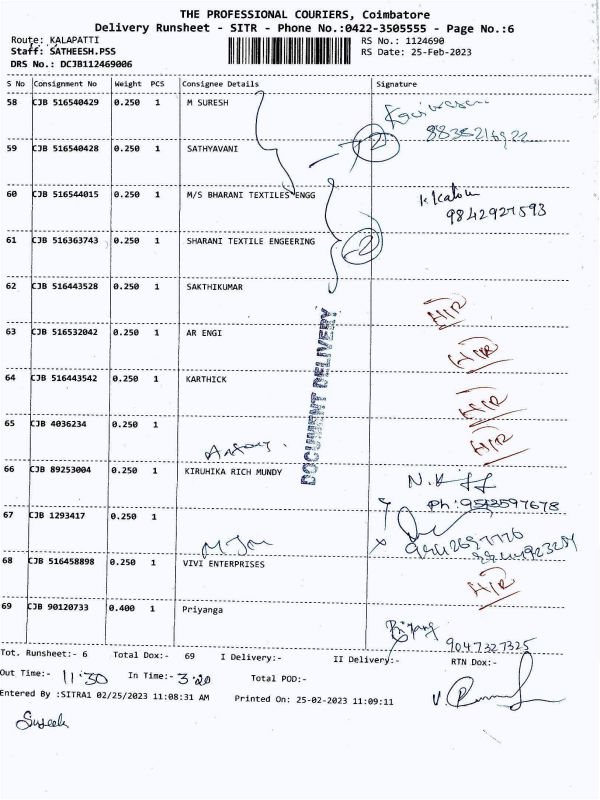 THE PROFESSIONAL COURIERS, Coimbatore
Delivery Runsheet - SITR - Phone No.:0422-3505555 - Page No.:6
Route: KALAPATTI
RS No.: 1124690
Staff: SATHEESH.PSS
RS Date: 25-Feb-2023
DRS No.: DCJB112469006
S No Consignment No Weight PCS Consignee Details Signature
58 CJB 516540429 0.250 1 M SURESH
59 CJB 516540428 0.250 1 SATHYAVANI 2
60 CJB 516544015 0.250 1 M/S BHARANI TEXTILES ENGG
9842927593
61 CJB 516363743 0.250 1 SHARANI TEXTILE ENGEERING 2
62 CJB 516443528 0.250 1 SAKTHIKUMAR
H/R
63 CJB 516532042 0.250 1 AR ENGI
H/R
64 CJB 516443542 0.250 1 KARTHICK
H/R
65 CJB 4036234 0.250 1
H/R
DOCUMENT DELIVERY
66 CJB 89253004 0.250 1 KIRUHIKA RICH MUNDY
Ph: 9513597678
67 CJB 1293417 0.250 1
68 CJB 516458898 0.250 1 VIVI ENTERPRISES
H/R
69 CJB 90120733 0.400 1 Priyanga
9047327325
Tot. Runsheet:- 6 Total Dox:- 69 I Delivery:- II Delivery:- RTN Dox:-
Out Time:- 11:30 In Time:- 3:20 Total POD:-
Entered By :SITRA1 02/25/2023 11:08:31 AM Printed On: 25-02-2023 11:09:11